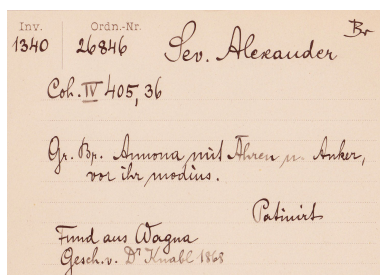 Inv. Ordn.-Nr. Br
1340 26846 Sev. Alexander
Coh. IV 405, 36
Gr. Br. Annona mit Ähren u. Anker,
vor ihr modius.
Patinirt
Fund aus Wagna
Gesch. v. Dr Knabl 1868